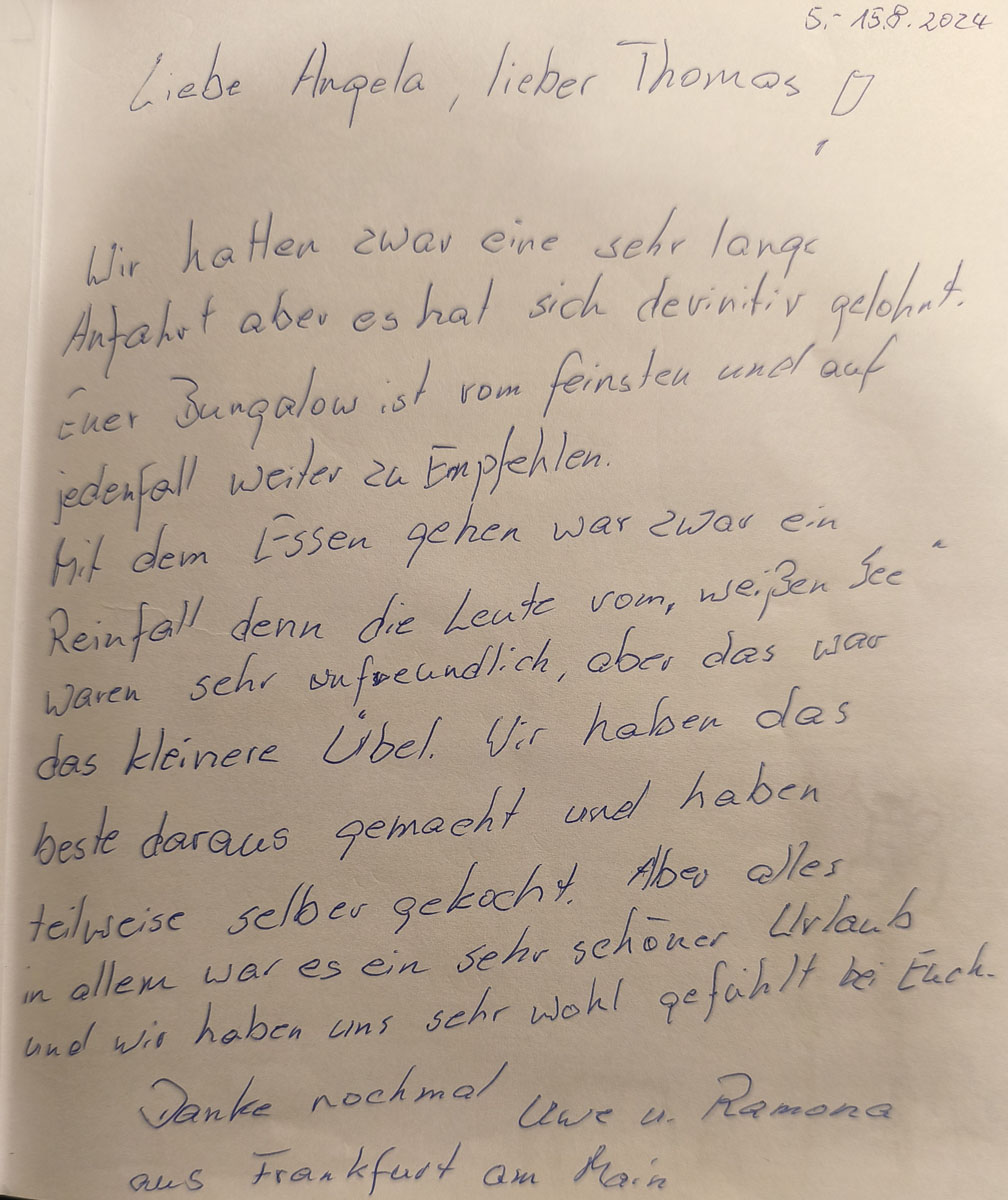 5.- 15.8.2024
Liebe Angela, lieber Thomas!
Wir hatten zwar eine sehr lange
Anfahrt aber es hat sich devinitiv gelohnt.
Euer Bungalow ist vom feinsten und auf
jedenfall weiter zu Empfehlen.
Mit dem Essen gehen war zwar ein
Reinfall denn die Leute vom „weißen See“
waren sehr unfreundlich, aber das war
das kleinere Übel. Wir haben das
beste daraus gemacht und haben
teilweise selber gekocht. Aber alles
in allem war es ein sehr schöner Urlaub
und wir haben uns sehr wohl gefühlt bei Euch.
Danke nochmal Uwe u. Ramona
aus Frankfurt am Main